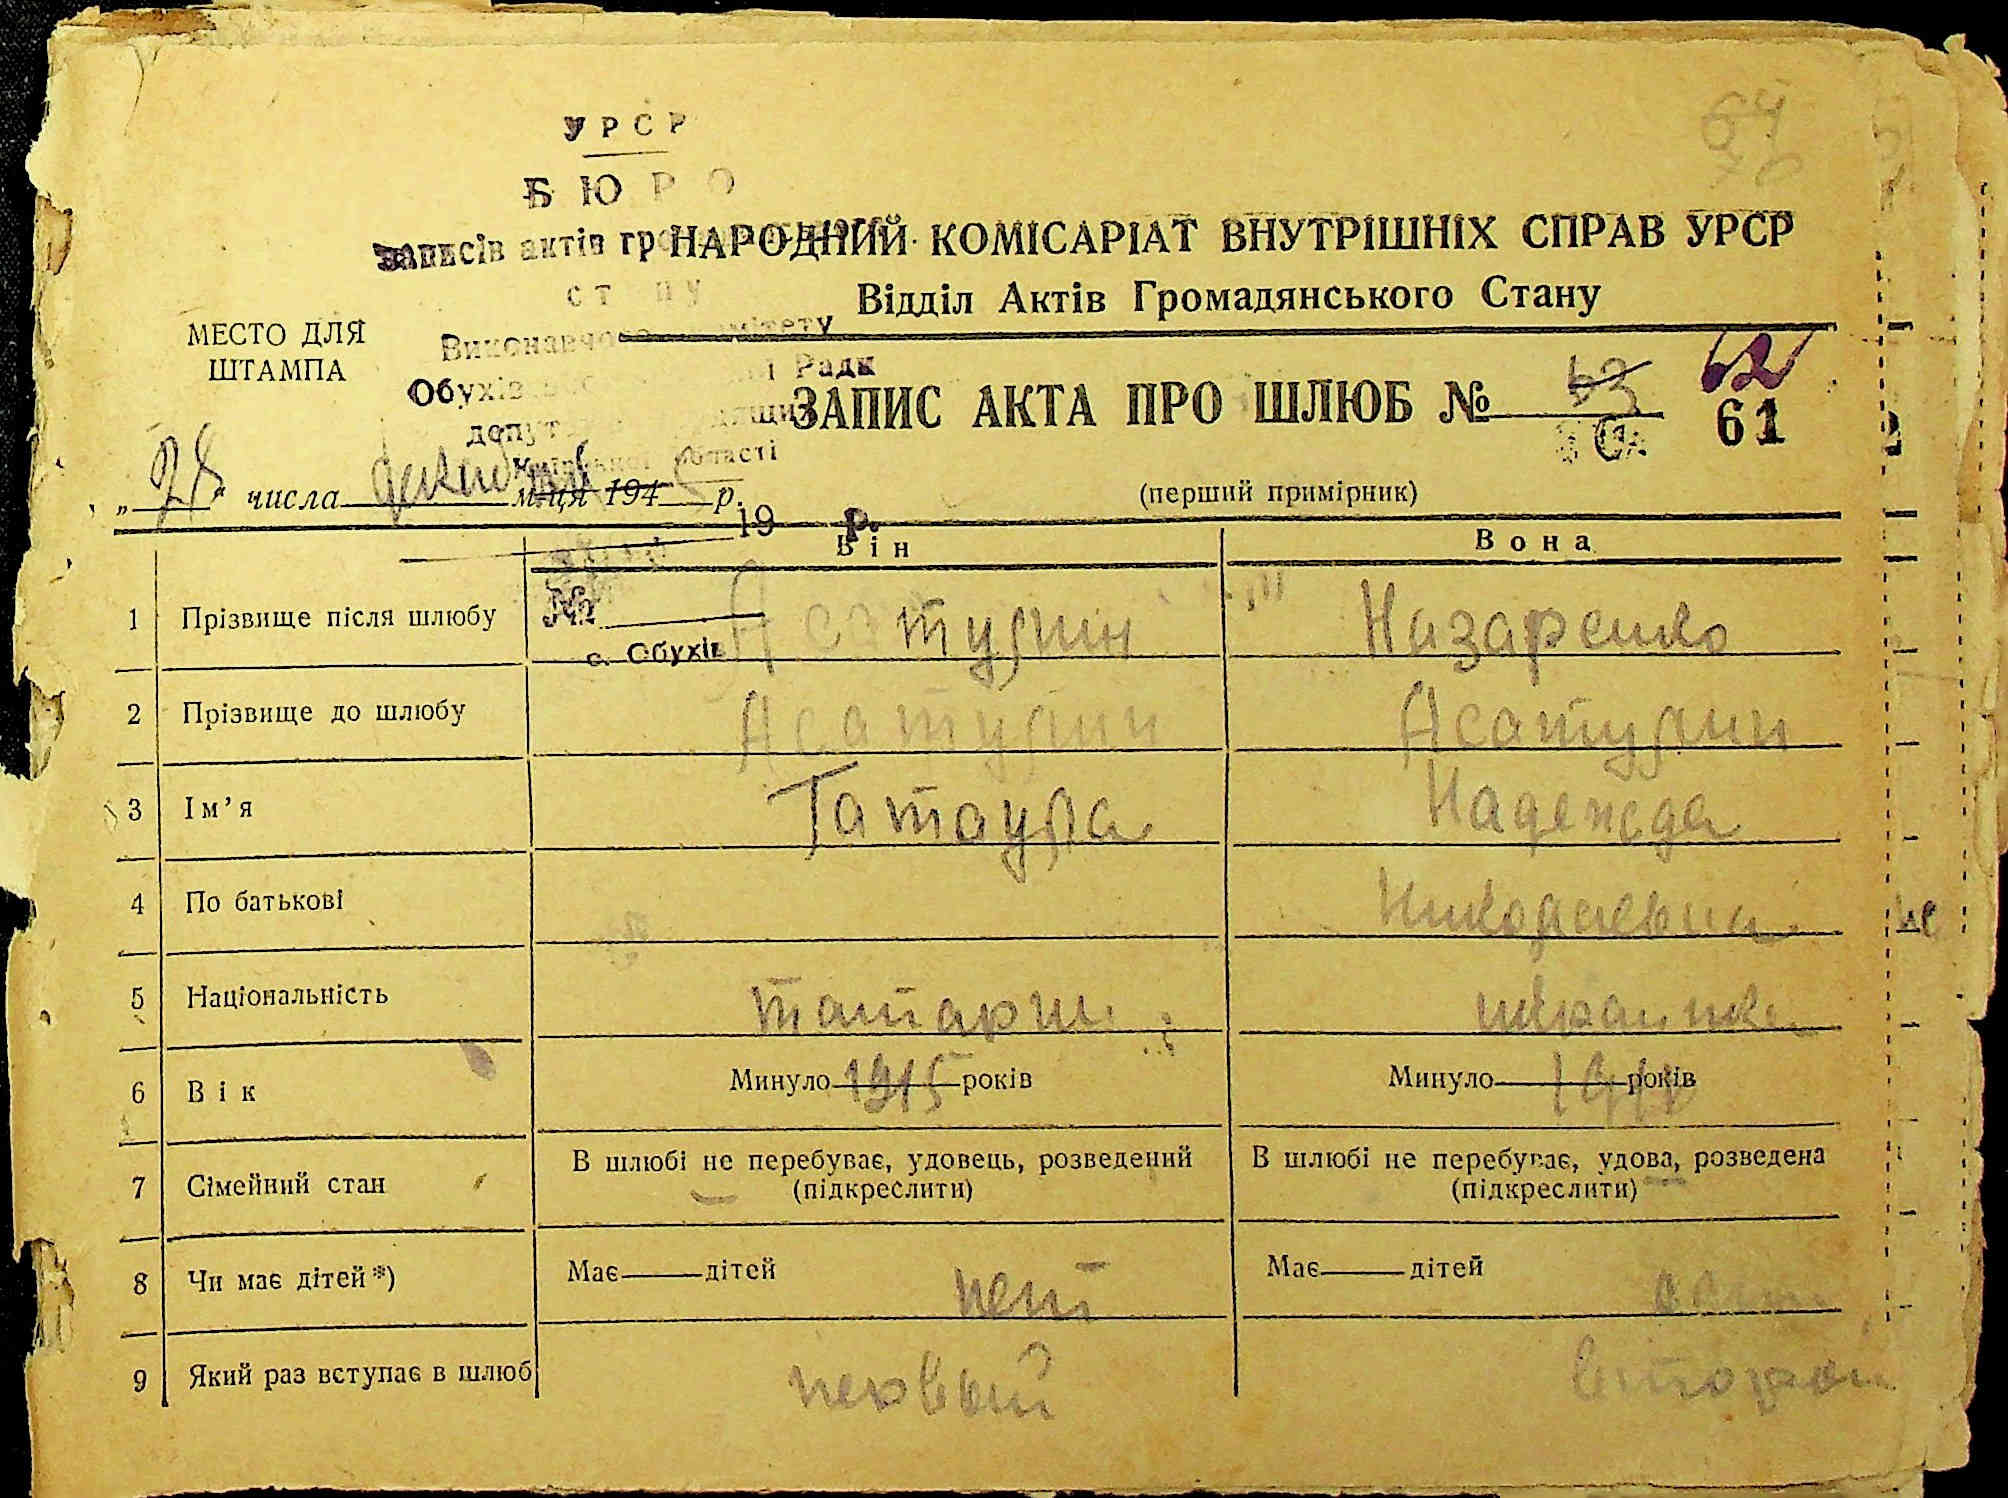 64
УРСР
БЮРО
записів актів
НАРОДНИЙ КОМІСАРІАТ ВНУТРІШНІХ СПРАВ УРСР
Відділ Актів Громадянського Стану
МЕСТО ДЛЯ
ШТАМПА
Ради
ЗАПИС АКТА ПРО ШЛЮБ № 63 62
61
области
„28“ числа декабря м-ця 194 р.
(перший примірник)
19 р.
Він Вона
1 Прізвище після шлюбу Асатулин Назаренко
№
с. Обухів
2 Прізвище до шлюбу Асатулин Асатулин
3 Ім’я Гатаула Надежда
4 По батькові Николаевна
5 Національність татарин украинка
6 Вік Минуло 1915 років Минуло років
7 Сімейний стан В шлюбі не перебуває, удовець, розведений В шлюбі не перебуває, удова, розведена
(підкреслити) (підкреслити)
8 Чи має дітей*) Має дітей нет Має дітей
9 Який раз вступає в шлюб первый второй